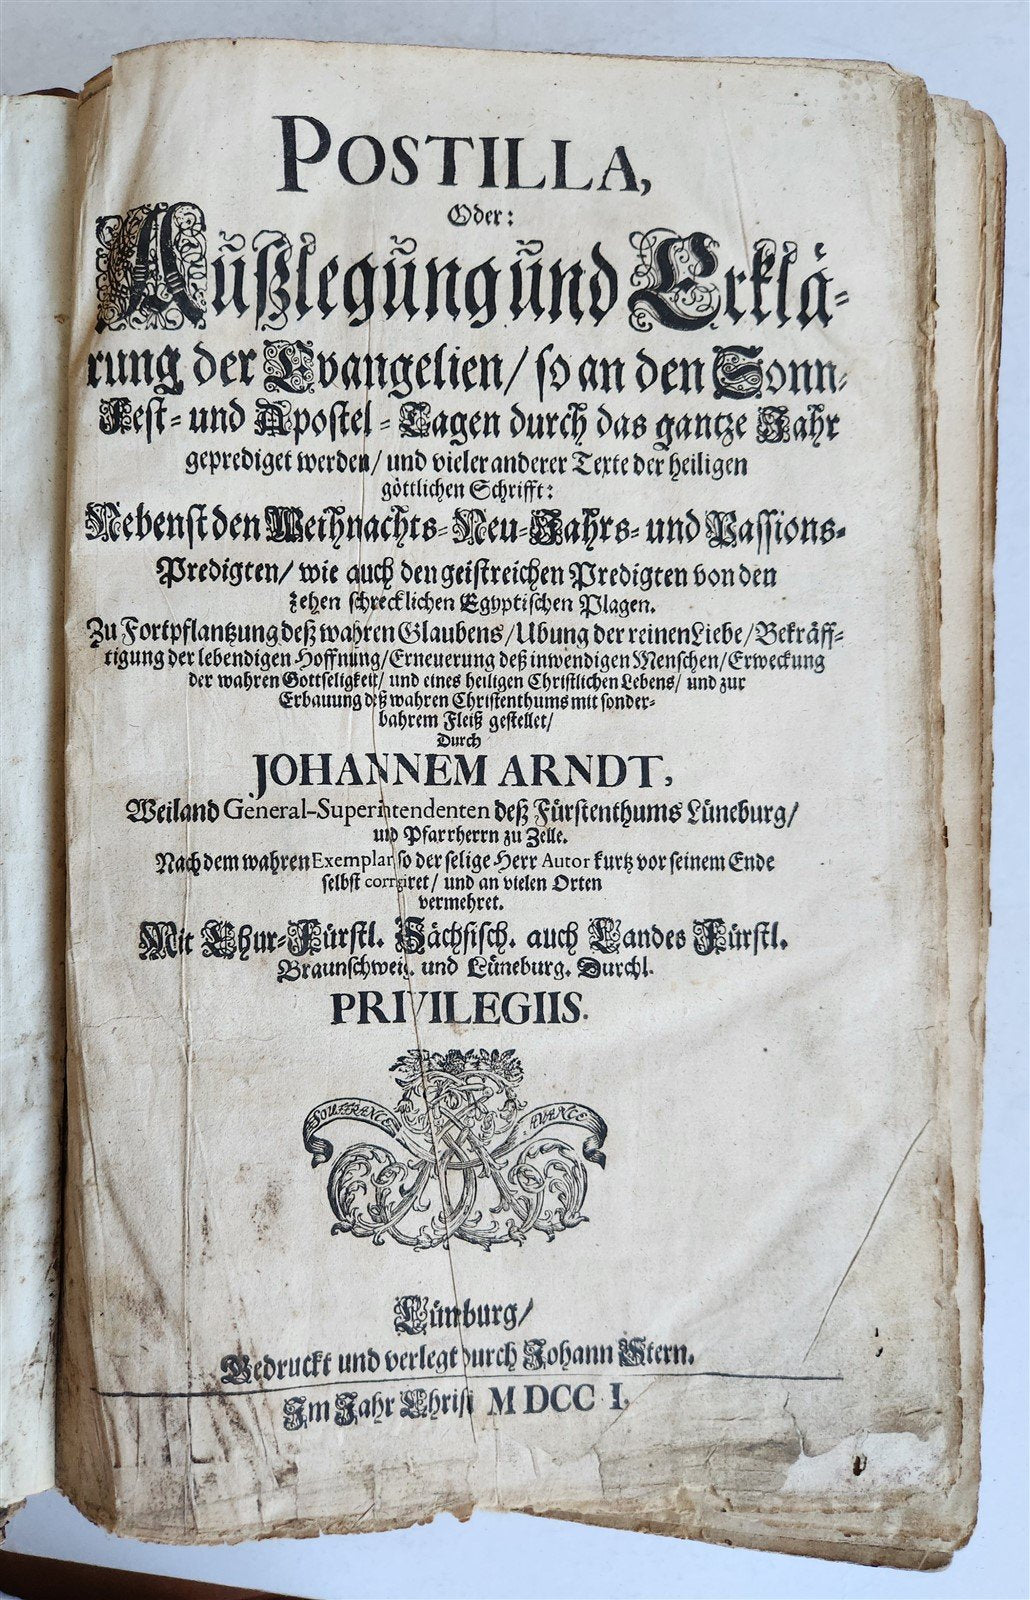 POSTILLA,
Oder:
Außlegung und Erklä-
rung der Evangelien/ so an den Sonn-
Fest- und Apostel-Tagen durch das gantze Jahr
geprediget werden/ und vieler anderer Texte der heiligen
göttlichen Schrifft:
Nebenst den Weihnachts-Neu-Jahrs- und Passions-
Predigten/ wie auch den geistreichen Predigten von den
zehen schrecklichen Egyptischen Plagen.
Zu Fortpflantzung deß wahren Glaubens/ Ubung der reinen Liebe/ Bekräff-
tigung der lebendigen Hoffnung/ Erneuerung deß inwendigen Menschen/ Erweckung
der wahren Gottseligkeit/ und eines heiligen Christlichen Lebens/ und zur
Erbauung deß wahren Christenthums mit sonder-
bahrem Fleiß gestellet/
Durch
JOHANNEM ARNDT,
Weiland General-Superintendenten deß Fürstenthums Lüneburg/
und Pfarrherrn zu Zelle.
Nach dem wahren Exemplar/ so der selige Herr Autor kurtz vor seinem Ende
selbst corrigiret/ und an vielen Orten
vermehret.
Mit Chur-Fürstl. Sächsisch. auch Landes Fürstl.
Braunschweig. und Lüneburg. Durchl.
PRIVILEGIIS.
SOUFFRANCE AVANCE
Lünburg/
Gedruckt und verlegt durch Johann Stern.
Im Jahr Christi MDCCI.